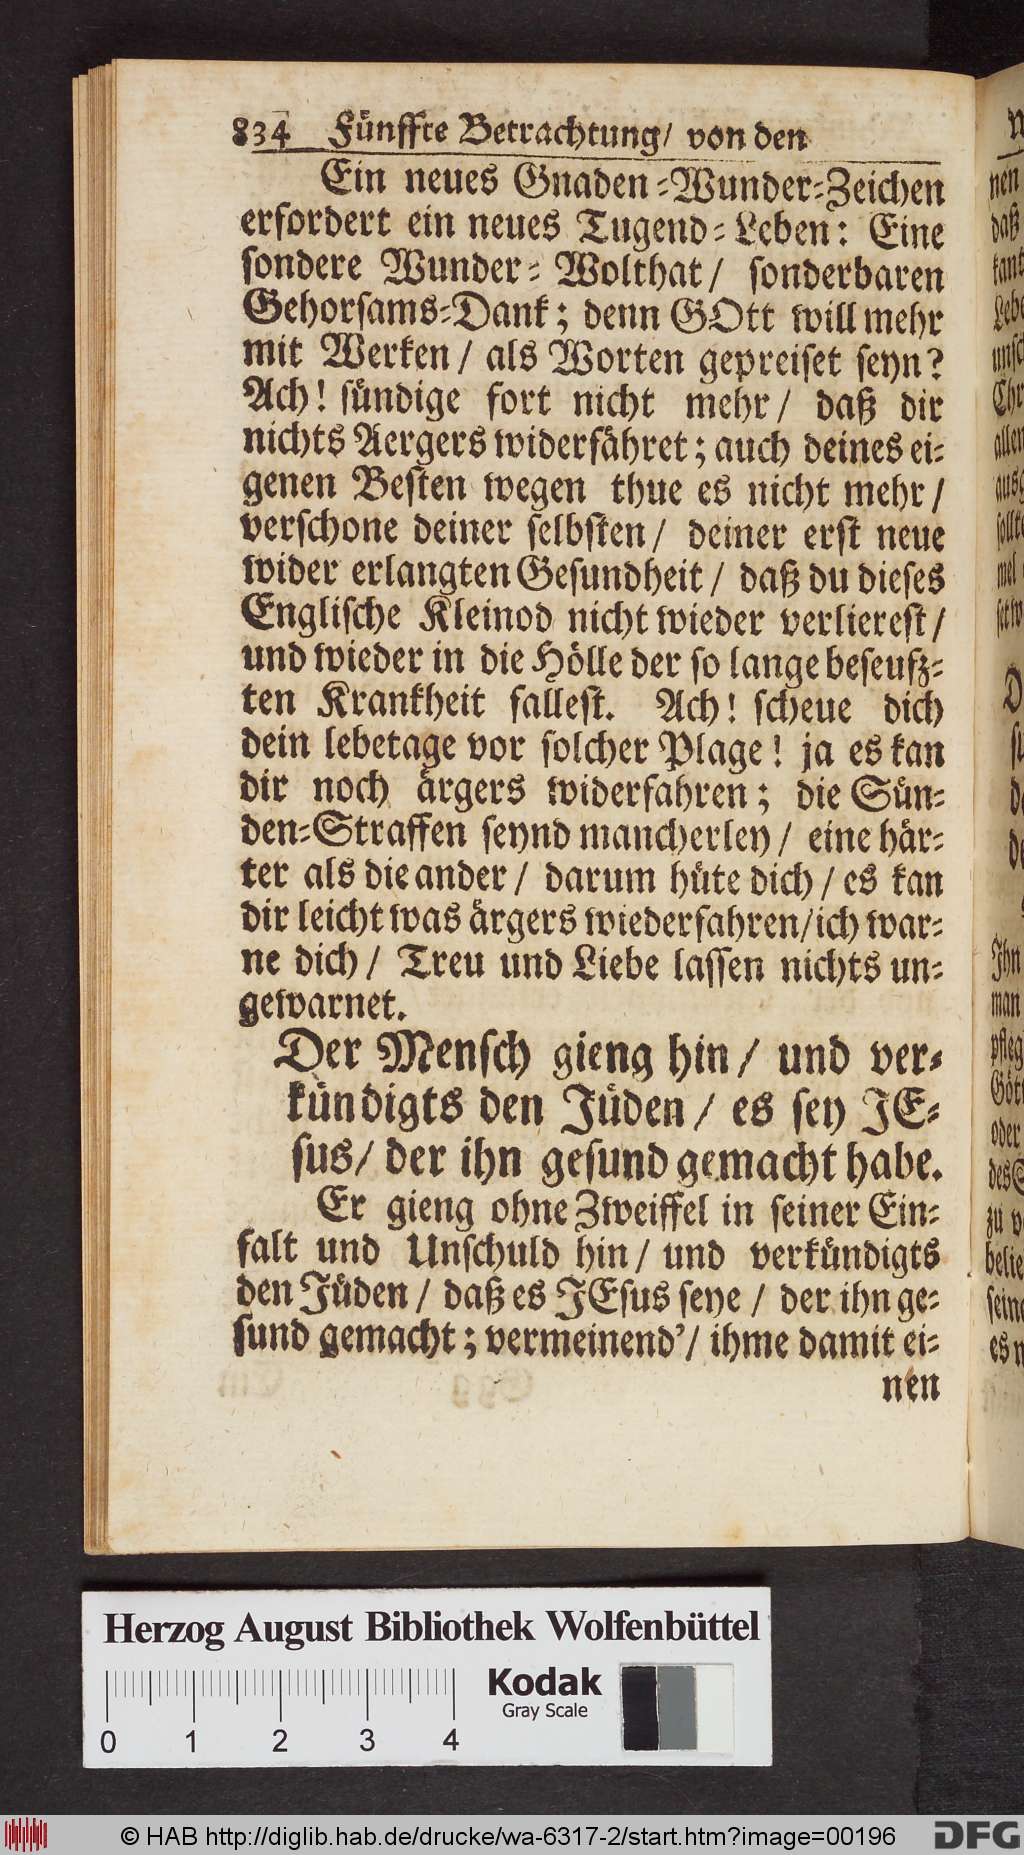 834 Fünffte Betrachtung/ von den
Ein neues Gnaden-Wunder-Zeichen
erfordert ein neues Tugend-Leben: Eine
sondere Wunder-Wolthat/ sonderbaren
Gehorsams-Dank; denn GOtt will mehr
mit Werken/ als Worten gepreiset seyn?
Ach! sündige fort nicht mehr/ daß dir
nichts Aergers widerfähret; auch deines ei-
genen Besten wegen thue es nicht mehr/
verschone deiner selbsten/ deiner erst neue
wider erlangten Gesundheit/ daß du dieses
Englische Kleinod nicht wieder verlierest/
und wieder in die Hölle der so lange beseufz-
ten Krankheit fallest. Ach! scheue dich
dein lebetage vor solcher Plage! ja es kan
dir noch ärgers widerfahren; die Sün-
den-Straffen seynd mancherley/ eine här-
ter als die ander/ darum hüte dich/ es kan
dir leicht was ärgers wiederfahren/ ich war-
ne dich/ Treu und Liebe lassen nichts un-
gewarnet.
Der Mensch gieng hin/ und ver-
kündigts den Jüden/ es sey JE-
sus/ der ihn gesund gemacht habe.
Er gieng ohne Zweiffel in seiner Ein-
falt und Unschuld hin/ und verkündigts
den Jüden/ daß es JEsus seye/ der ihn ge-
sund gemacht; vermeinend'/ ihme damit ei-
nen
nen
daß
unsc
Chr
allen
Ihn
man
pfleg
Gött
oder
des S
zu v
belie
seine
es n
Herzog August Bibliothek Wolfenbüttel
Kodak
Gray Scale
0 1 2 3 4
© HAB http://diglib.hab.de/drucke/wa-6317-2/start.htm?image=00196
DFG